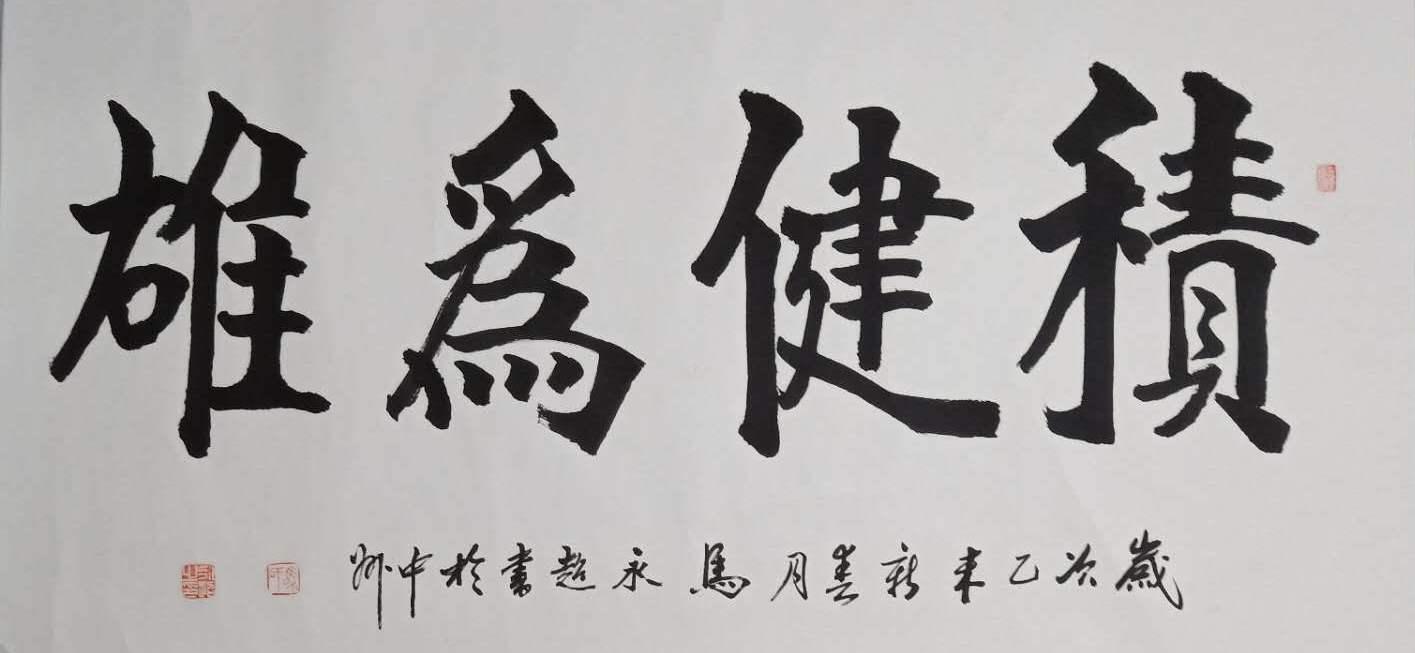 積健爲雄
歲次乙未新春月馬永超書於中州